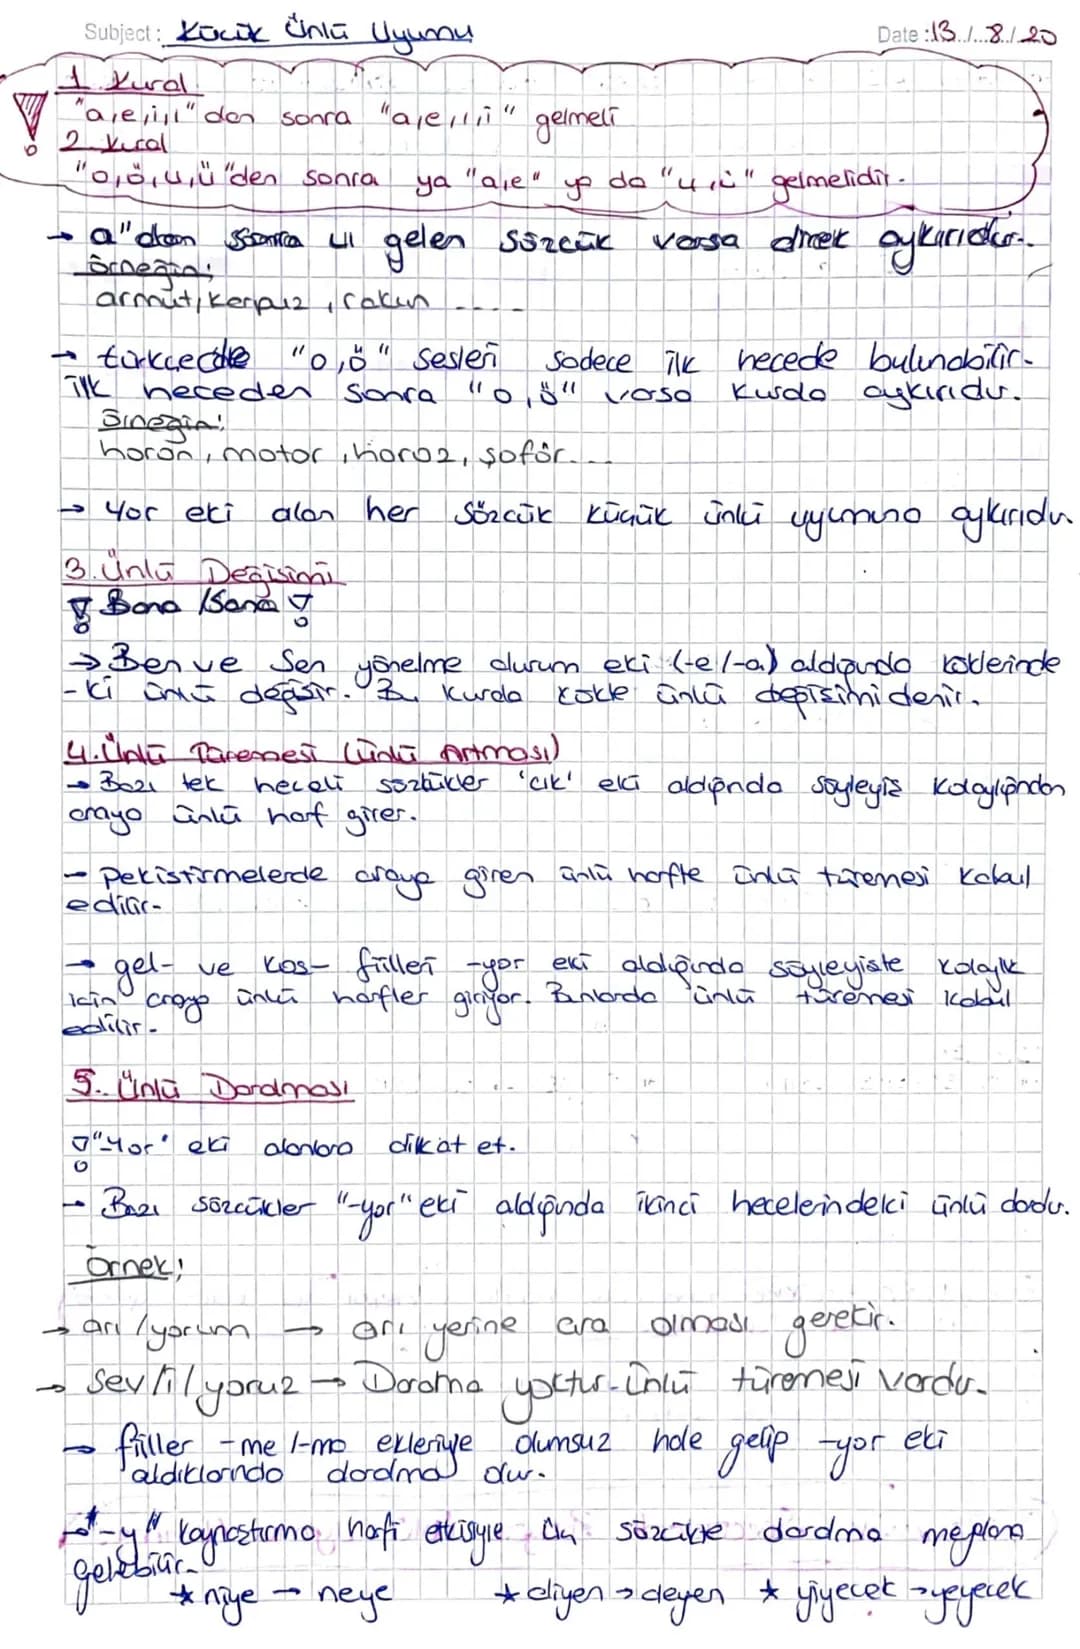 Subject: Kücük Ünlü Uyumu
Date: 13./..8./.20
1. Kural
"a,e,i,ı" dan sonra "a,e,ı,i" gelmeli
2. Kural
"o,ö,u,ü" den sonra ya "a,e" ya da "u,ü" gelmelidir.
→ a"dan sonra u gelen sözcük varsa direk aykırıdır..
örneğin;
armut, karpuz, rakun ....
→ türkcede "o,ö" sesleri sadece ilk hecede bulunabilir.
ilk heceden sonra "o,ö" varsa kurala aykırıdır.
örneğin:
horon, motor, horoz, şoför....
→ Yor eki alan her sözcük küçük ünlü uyumuna aykırıdır
3. Ünlü Değisimi
Bana /Sana
→ Ben ve Sen yönelme durum eki (-e/-a) aldığında köklerinde
-ki ünlü değisir. Bu kurala kökte ünlü değisimi denir.
4. Ünlü Türemesi (Ünlü Artması)
→ Bazı tek heceli sözcükler 'cık' eki aldığında söyleyiş kolaylığından
araya ünlü harf girer.
- Pekistirmelerde araya giren ünlü harfte ünlü türemesi kabul
edilir-
→ gel- ve kos- fiilleri -yor eki aldığında söyleyiste kolaylık
icin araya ünlü harfler giriyor. Bunlarda ünlü türemesi kabul
edilir-
5. Ünlü Daralması
"Yor' eki alanlara dikkat et.
- Bazı sözcükler "-yor" eki aldığında ikinci hecelerindeki ünlü daralır.
Örnek;
→ arı/yorum → arı yerine ara olması gerekir.
→ sev/i/yoruz → Daralma yoktur. Ünlü türemesi vardır.
→ fiiller -me/-ma ekleriyle olumsuz hale gelip -yor eki
aldıklarında daralma olur.
→ "-y" kaynaştırma harfi etkisiyle üç sözcükte daralma meydana
gelebilir.
* niye → neye * diyen → deyen * yiyecek → yeyecek